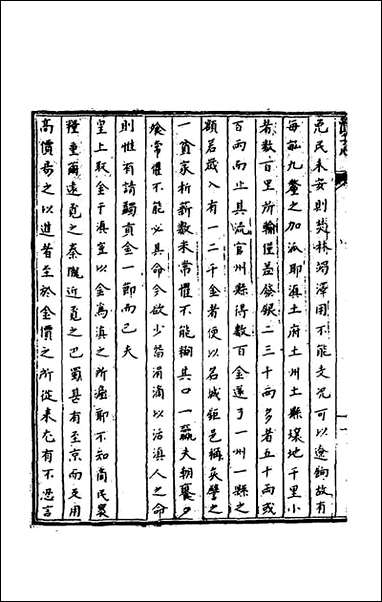 危民未安則焚林涸澤用不能支况可以逾餉故有
每畝九釐之加派耶滇土府土州土縣壤地千里小
者數百里所輸僅差發銀二三十兩多者五十兩或
百兩而止具流官州縣得數百金遂了一州一縣之
額若歲入有一二千金者便以名城鉅邑稱矣譬之
一貧家析薪數米常懼不能糊其口一羸夫朝饔夕
飧常懼不能必其命今欲少留涓滴以活滇人之命
則惟有請蠲貢金一節而已夫
皇上取金于滇豈以金為滇之所產耶不知商民裹
糧重爾遠覓之秦隴近覓之巴蜀甚有至京而反用
高價易之以進者至於金價之所從來尤有不忍言